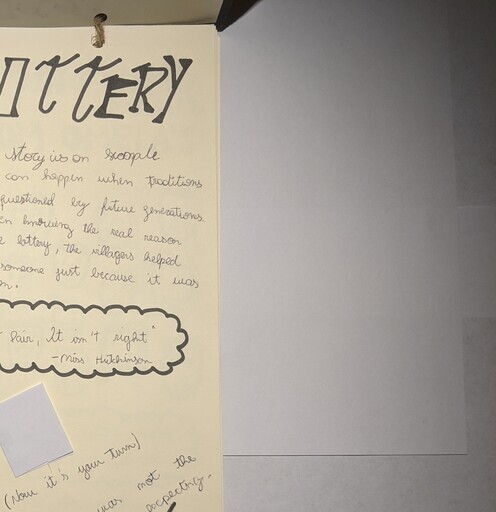 OTTERY
story is an example
can happen when traditions
questioned by future generations.
en knowing the real reason
e lottery, the villagers helped
someone just because it was
on.
t fair, It isn't right"
-Mrs Hutchinson
(Now it's your turn)
was not the
expecting.